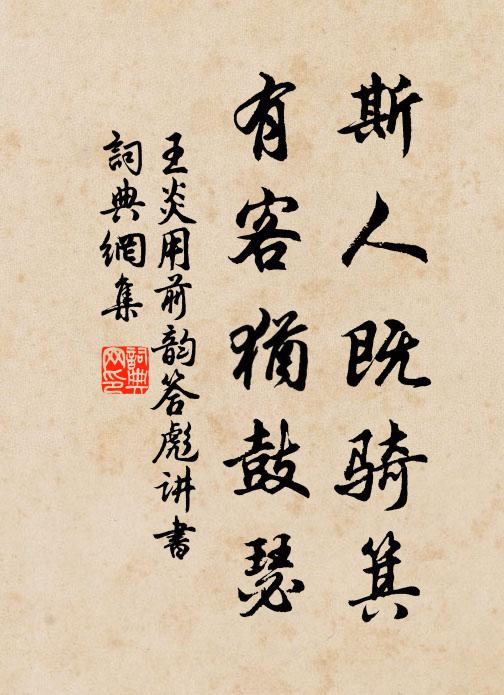 斯人既骑箕
有客犹鼓瑟
王炎用前韵答彪讲书
词典網集
詞典网印